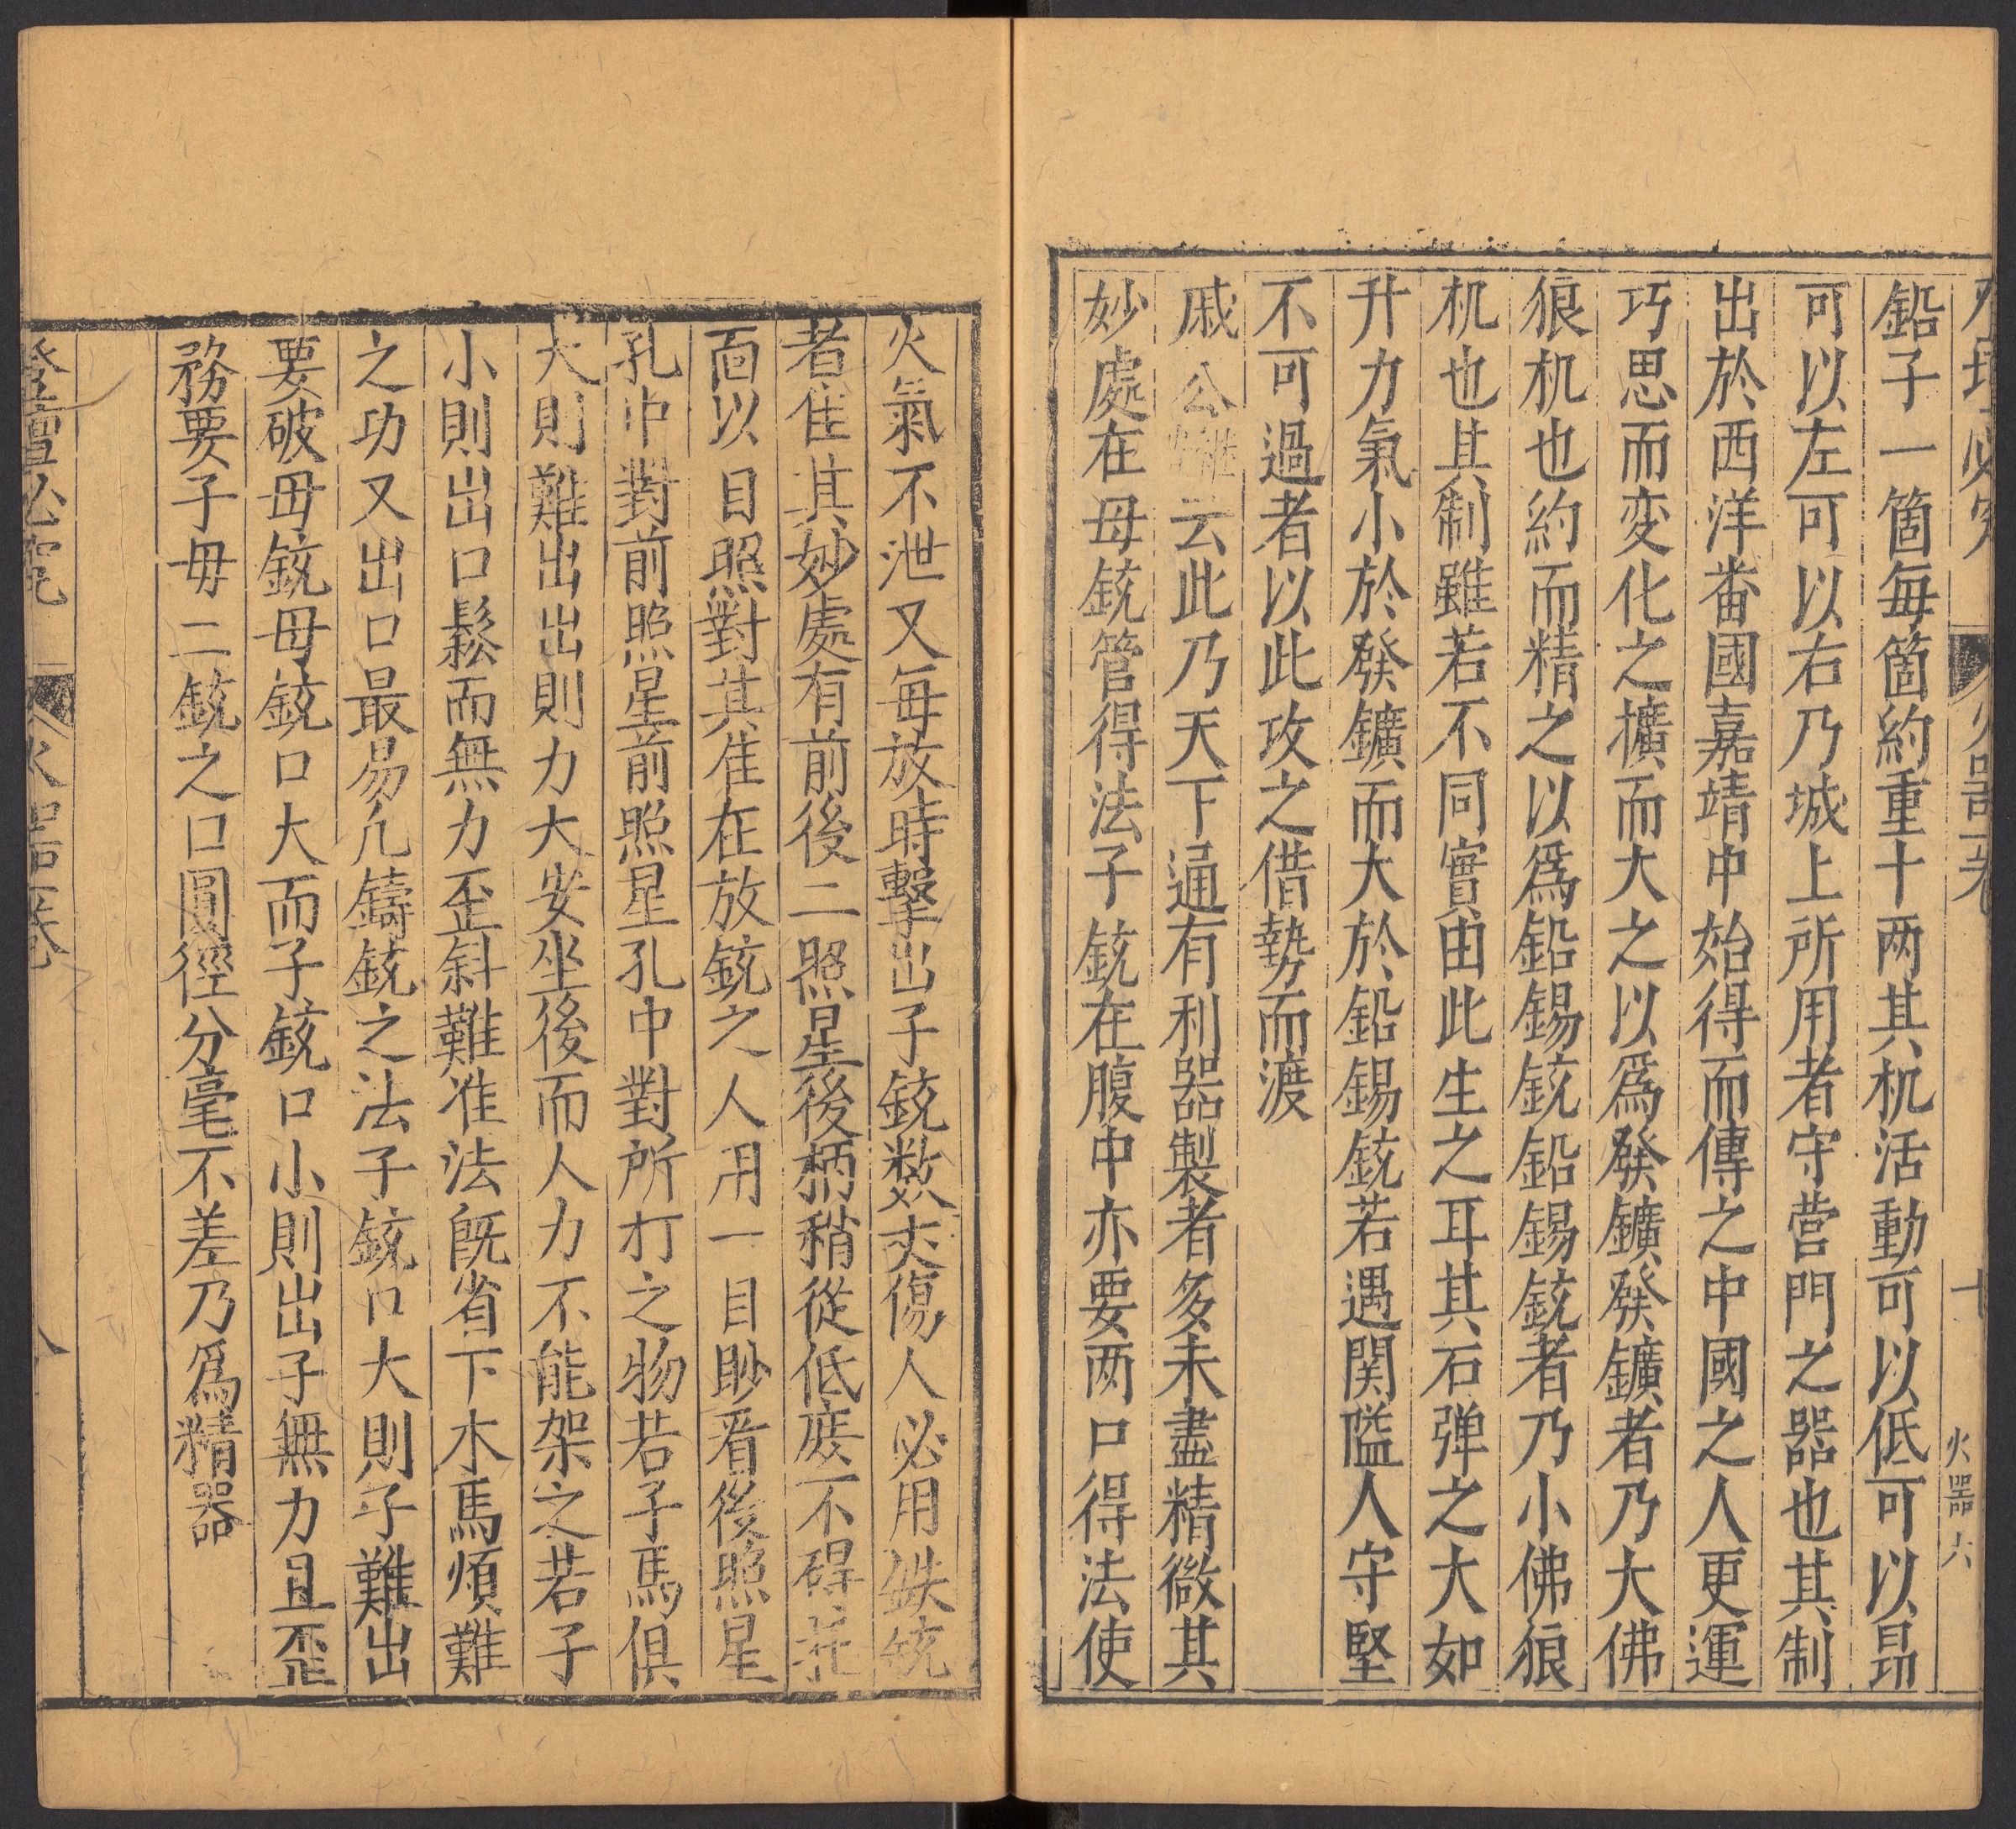 鉛子一箇每箇約重十两其机活動可以低可以昻
可以左可以右乃城上所用者守营門之器也其制
出於西洋畨國嘉靖中始得而傳之中國之人更運
巧思而变化之擴而大之以爲發鑛發鑛者乃大佛
狼机也約而精之以爲鉛錫銃鉛錫銃者乃小佛狼
机也其制雖若不同實由此生之耳其石弹之大如
升力氣小於發鑛而大於鉛錫銃若遇関隘人守堅
不可過者以此攻之借勢而渡
戚公云此乃天下通有利器製者多未盡精微其
妙處在母銃管得法子銃在腹中亦要两口得法使
火器六
火氣不泄又每放時擊出子銃数丈傷人必用鉄
者隹其妙處有前後二照星後柄稍從低庻不碍
面以目照對其隹在放銃之人用一目眇看後照星
孔中對前照星前照星孔中對所打之物若子馬俱
大則難出出則力大安坐後而人力不能架之若子
小則出口鬆而無力歪斜難准法旣省下木馬煩難
之功又出口最易凢鑄銃之法子銃口大則子難出
要破母銃母銃口大而子銃口小則出子無力且歪
務要子母二銃之口圓徑分毫不差乃爲精器
登壇必究 火器卷